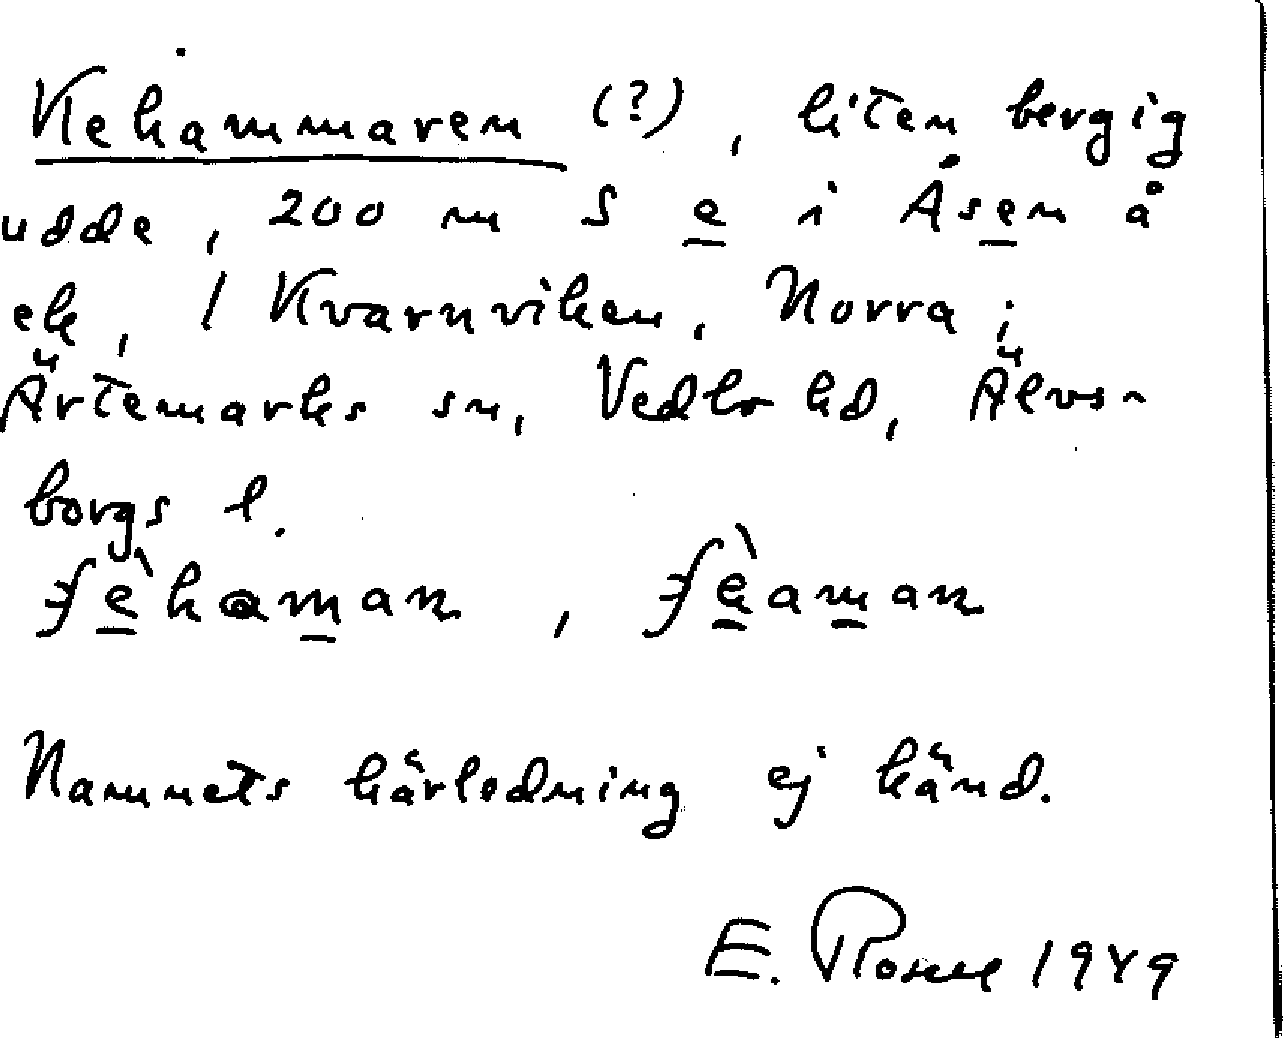 Kehammaren (?), liten bergig
udde, 200 m S e i Åsen å
ek, / Kvarnviken, Norra;
Ärtemarks sn, Vedbo hd, Älvs-
borgs l.
Namnets härledning ej känd.
E. 1949